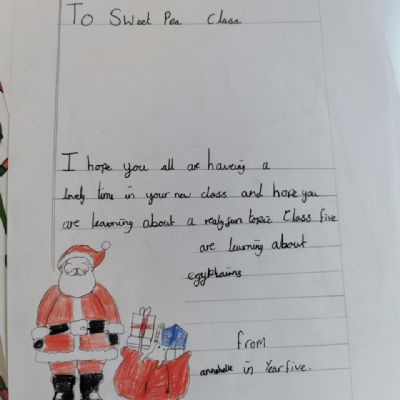 To Sweet Pea Class
I hope you all are haveing a
lovely time in your new class and hope you
are learning about a really fun topic Class five
are learning about
egyptains
from
annabelle in Year five.